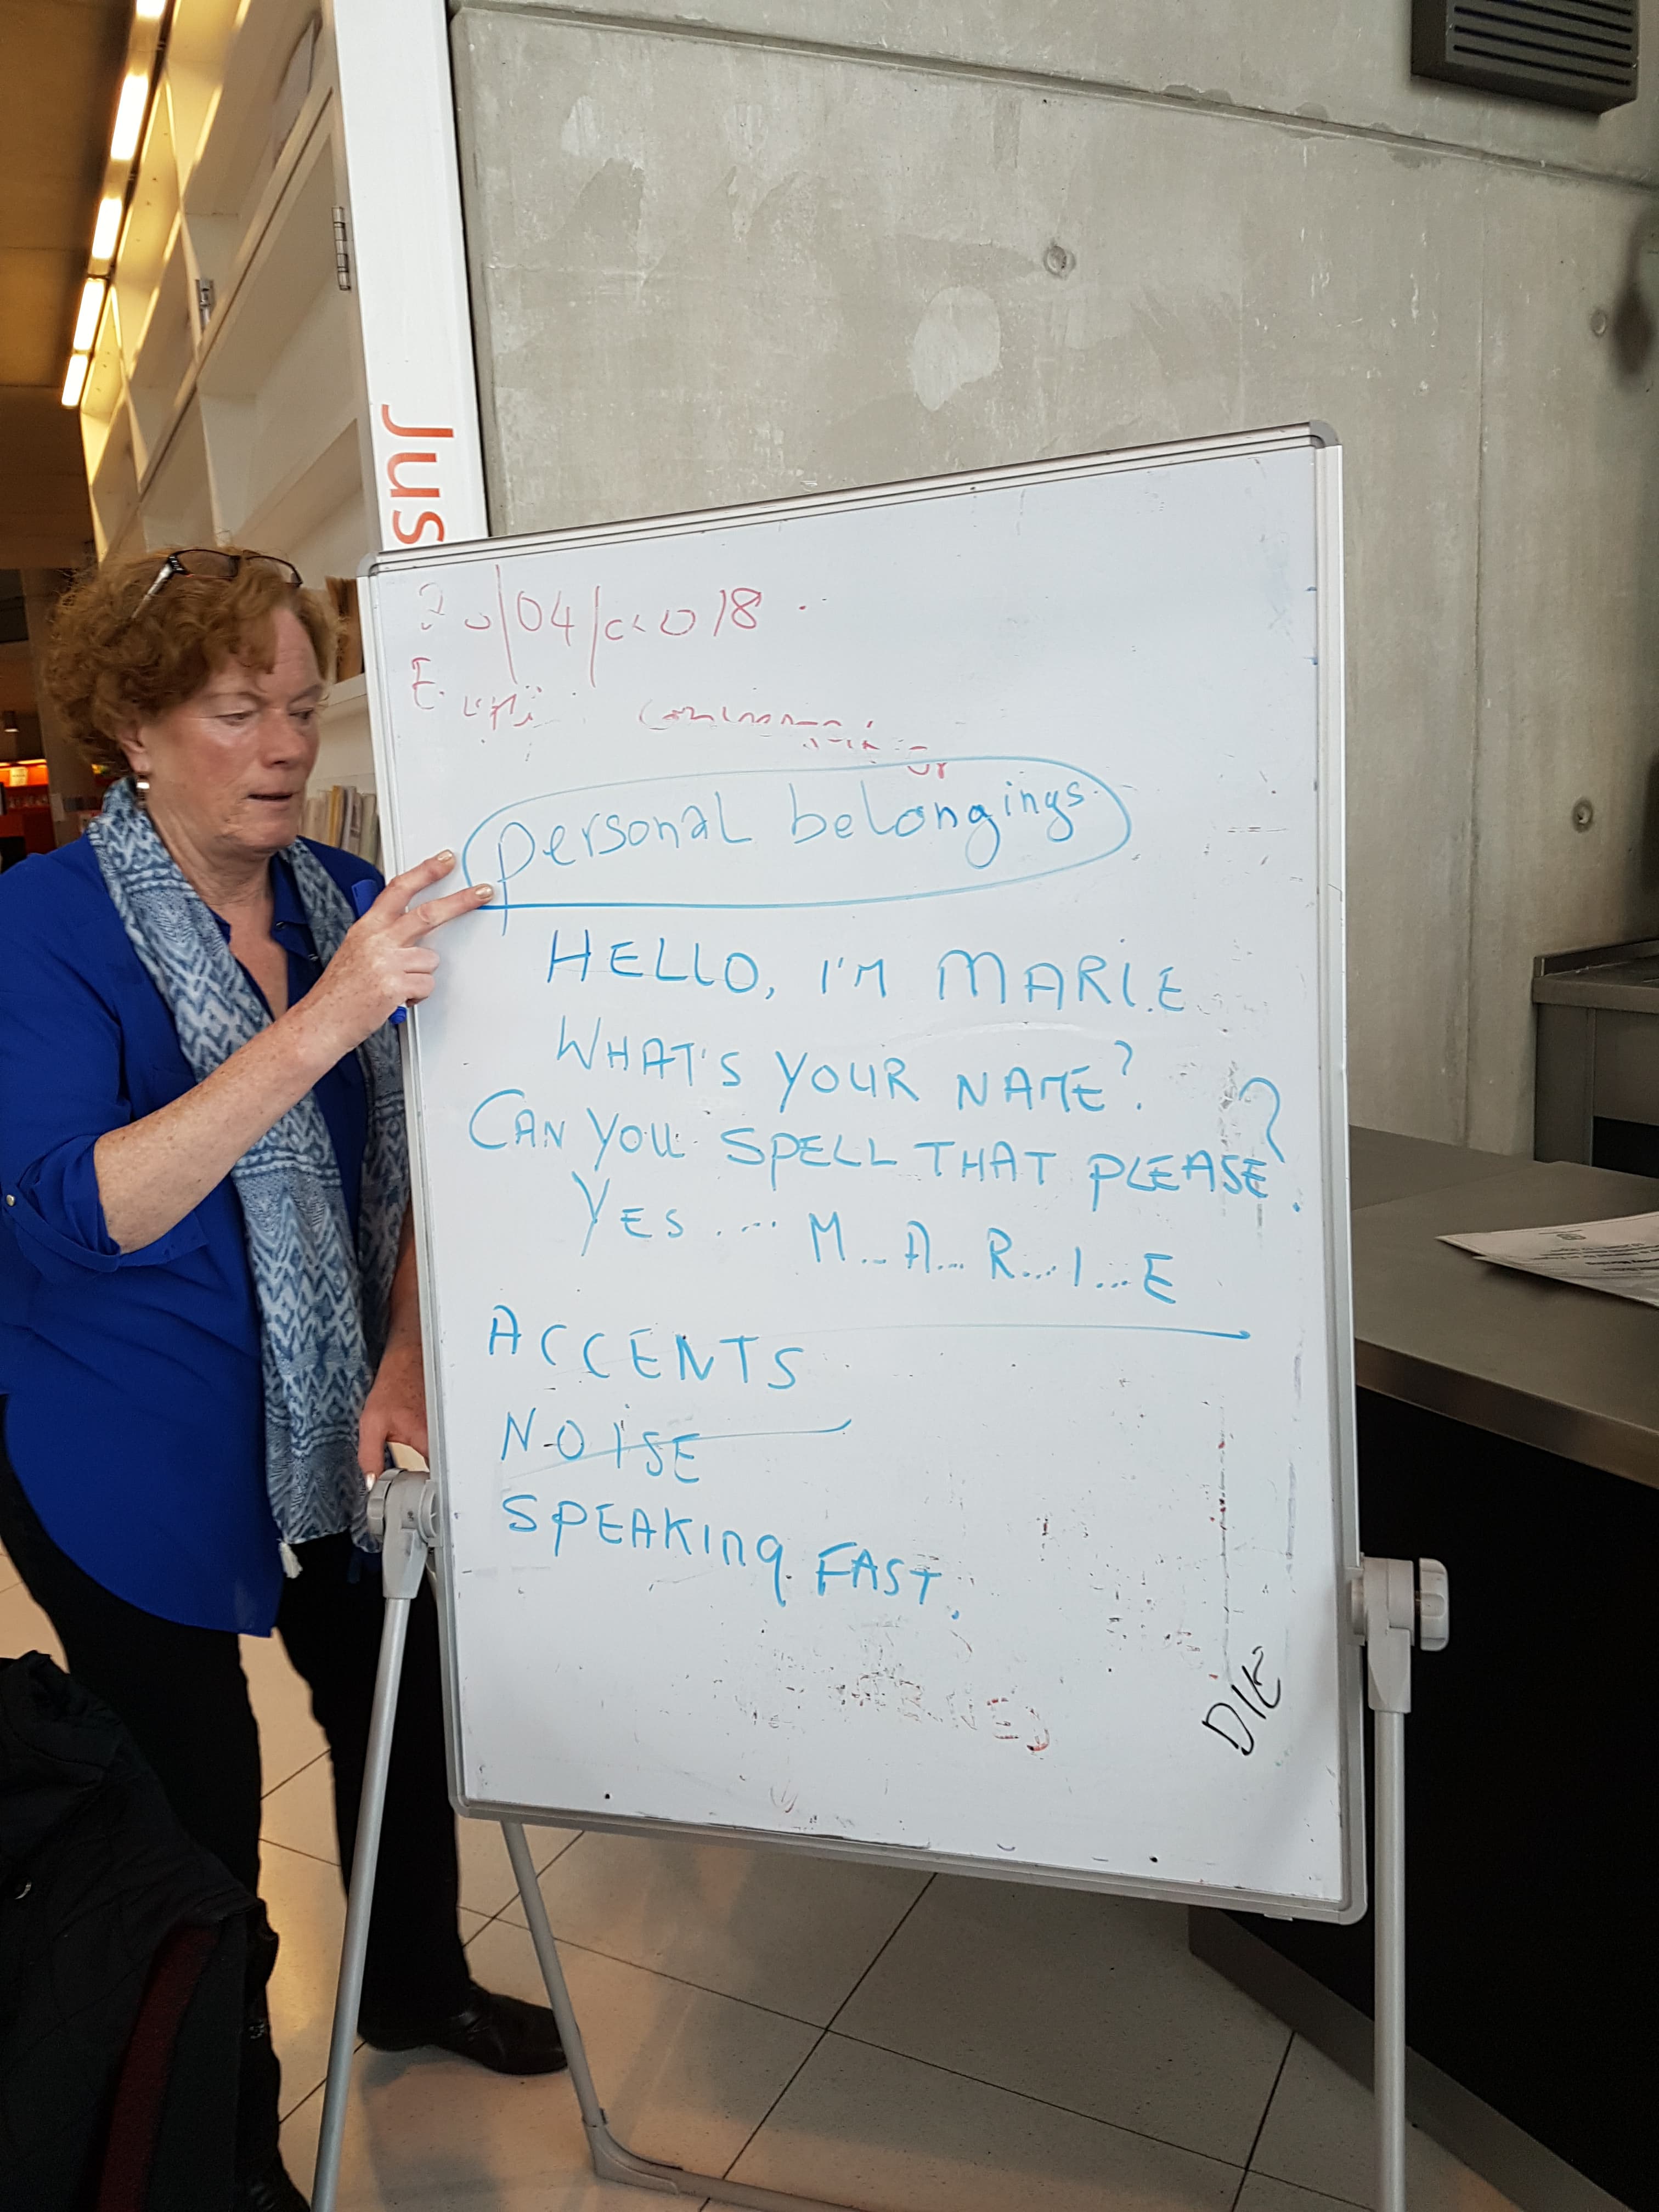 Jus
20/04/2018
personal belongings
HELLO, I'M MARIE
WHAT'S YOUR NAME?
CAN YOU SPELL THAT PLEASE?
YES .... M...A...R...I...E
ACCENTS
NOISE
SPEAKING FAST.
DIE